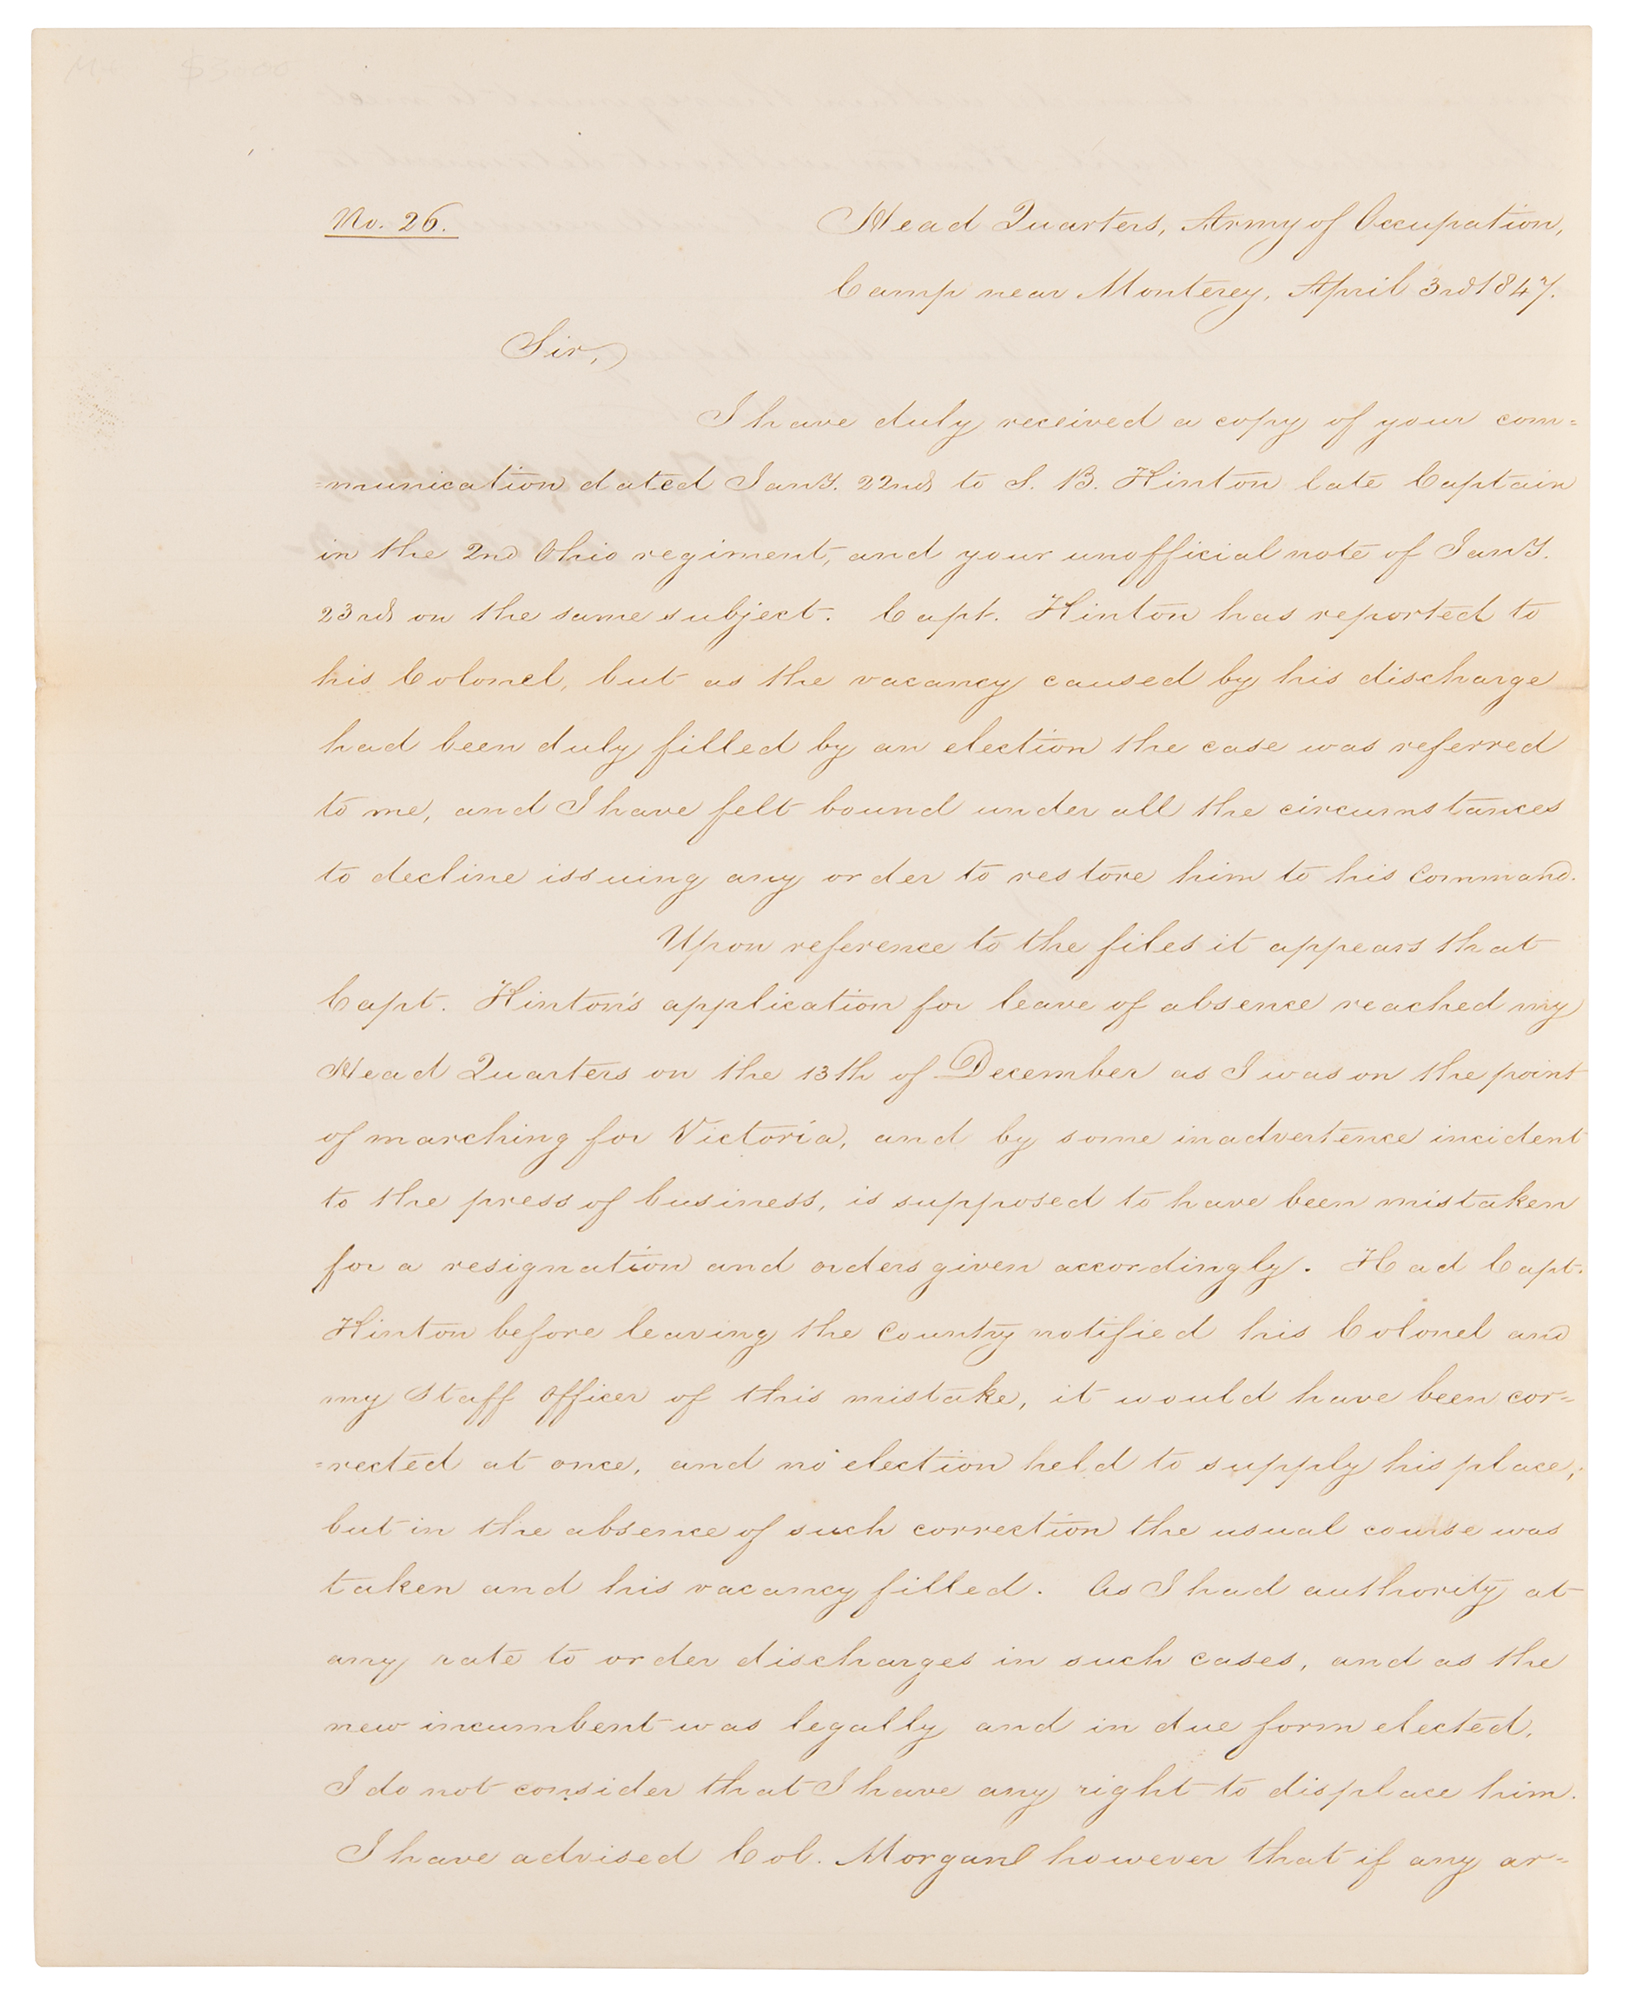 No. 26.
Head Quarters, Army of Occupation,
Camp near Monterey, April 3rd 1847.
Sir,
I have duly received a copy of your com=
=munication dated Jany. 22nd to S. B. Hinton late Captain
in the 2nd Ohio regiment, and your unofficial note of Jany.
23rd on the same subject. Capt. Hinton has reported to
his Colonel, but as the vacancy caused by his discharge
had been duly filled by an election the case was referred
to me, and I have felt bound under all the circumstances
to decline issuing any order to restore him to his Command.
Upon reference to the files it appears that
Capt. Hinton's application for leave of absence reached my
Head Quarters on the 13th of December as I was on the point
of marching for Victoria, and by some inadvertence incident
to the press of business, is supposed to have been mistaken
for a resignation and orders given accordingly. Had Capt.
Hinton before leaving the Country notified his Colonel and
my Staff Officer of this mistake, it would have been cor=
=rected at once, and no election held to supply his place;
but in the absence of such correction the usual course was
taken and his vacancy filled. As I had authority at
any rate to order discharges in such cases, and as the
new incumbent was legally and in due form elected,
I do not consider that I have any right to displace him.
I have advised Col. Morgan however that if any ar=